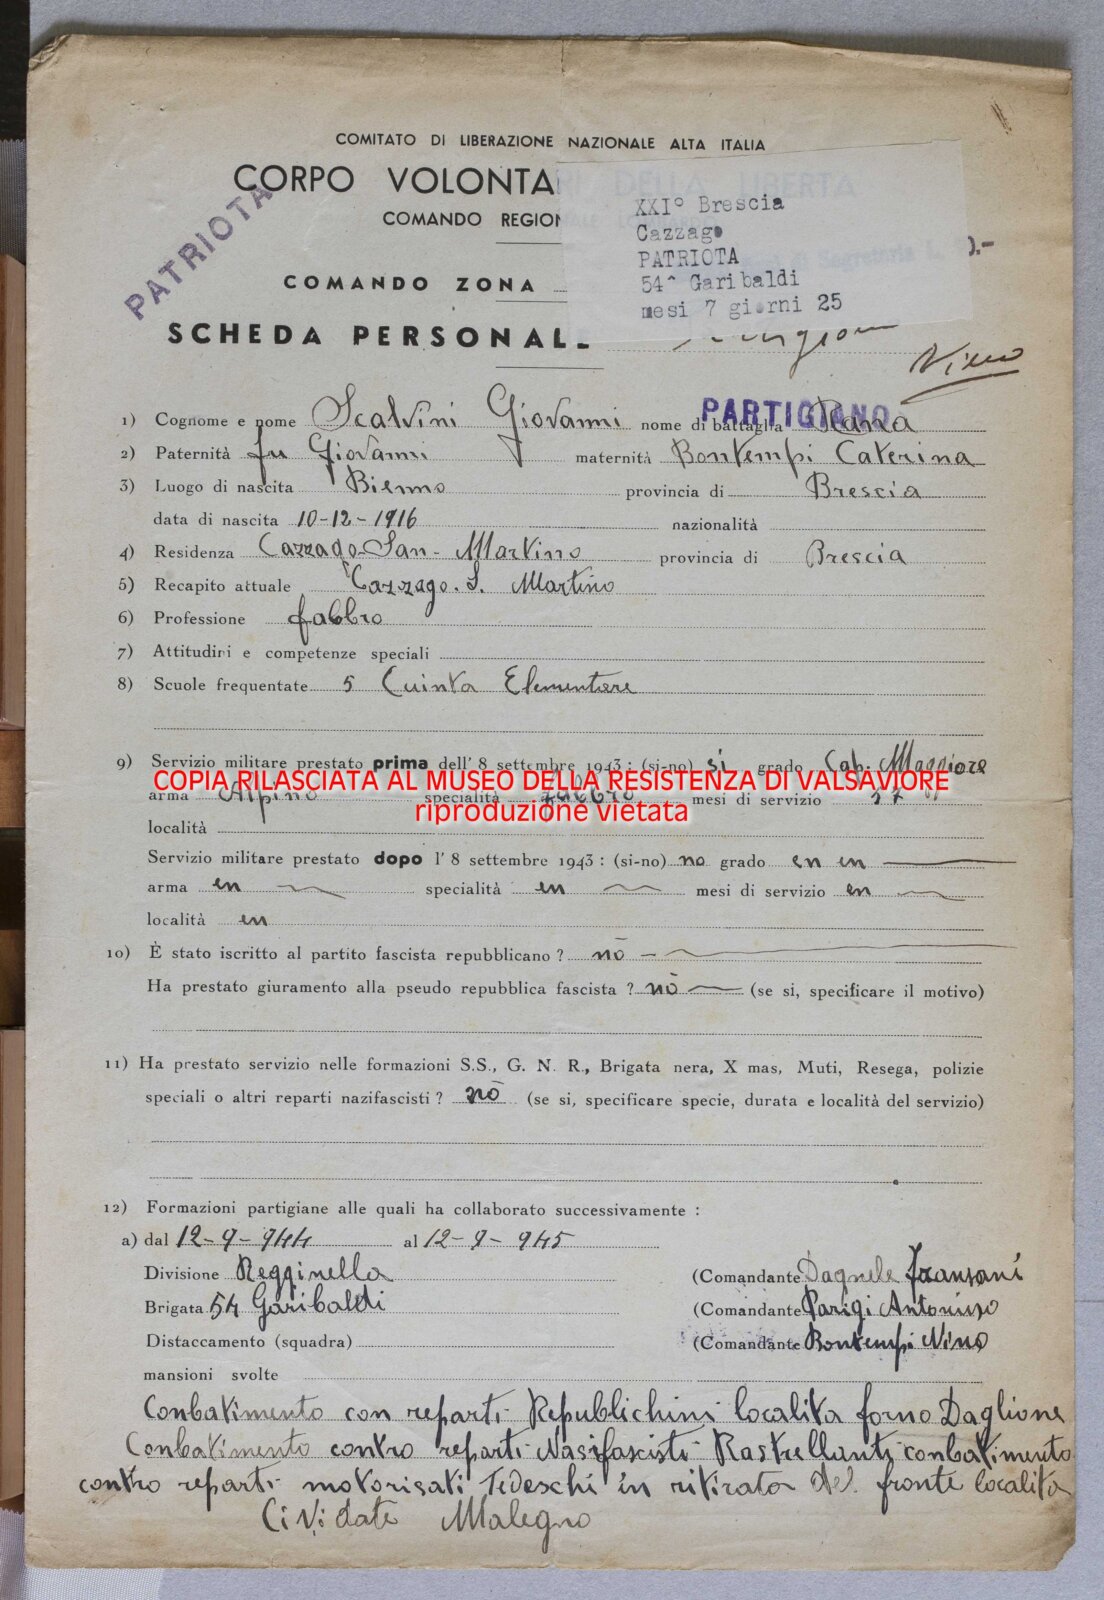 COMITATO DI LIBERAZIONE NAZIONALE ALTA ITALIA
CORPO VOLONTARI DELLA LIBERTÀ
COMANDO REGION
PATRIOTA
XXI° Brescia
Cazzago
PATRIOTA
54^ Garibaldi
mesi 7 giorni 25
).-
COMANDO ZONA
SCHEDA PERSONALE
PARTIGIANO
1) Cognome e nome Scalvini Giovanni nome di battaglia
2) Paternità fu Giovanni maternità Bontempi Caterina
3) Luogo di nascita Bienno provincia di Brescia
data di nascita 10-12-1916 nazionalità
4) Residenza Cazzago-San-Martino provincia di Brescia
5) Recapito attuale Cazzago. S. Martino
6) Professione fabbro
7) Attitudini e competenze speciali
8) Scuole frequentate 5 Cuinta Elementare
9) Servizio militare prestato prima dell' 8 settembre 1943: (si-no) si grado Cap. Maggiore
COPIA RILASCIATA AL MUSEO DELLA RESISTENZA DI VALSAVIORE
arma Alpino specialità fabbro mesi di servizio
riproduzione vietata
località
Servizio militare prestato dopo l' 8 settembre 1943: (si-no) no grado en en
arma en specialità en mesi di servizio en
località en
10) È stato iscritto al partito fascista repubblicano ? nò -
Ha prestato giuramento alla pseudo repubblica fascista ? nò (se si, specificare il motivo)
11) Ha prestato servizio nelle formazioni S.S., G. N. R., Brigata nera, X mas, Muti, Resega, polizie
speciali o altri reparti nazifascisti ? nò (se si, specificare specie, durata e località del servizio)
12) Formazioni partigiane alle quali ha collaborato successivamente :
a) dal 12-9-944 al 12-9-945
Divisione Regginella (Comandante Dagnele Fransoni
Brigata 54 Garibaldi (Comandante Parigi Antonino
Distaccamento (squadra) (Comandante Bontempi Nino
mansioni svolte
Conbatimento con reparti Republichini localita forno Daglione
Conbatimento contro reparti Nasifascisti Rastrellanti conbatimento
contro reparti motorisati Tedeschi in ritirata del fronte localita
Cividate Malegno